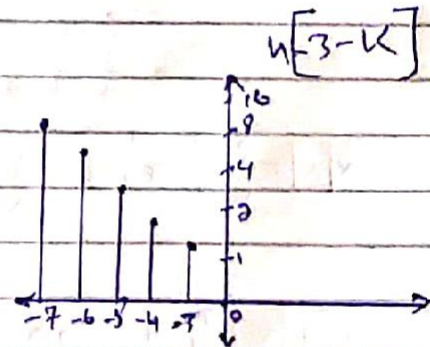 h[-3-k]
16
8
4
2
1
-7 -6 -5 -4 -3 0